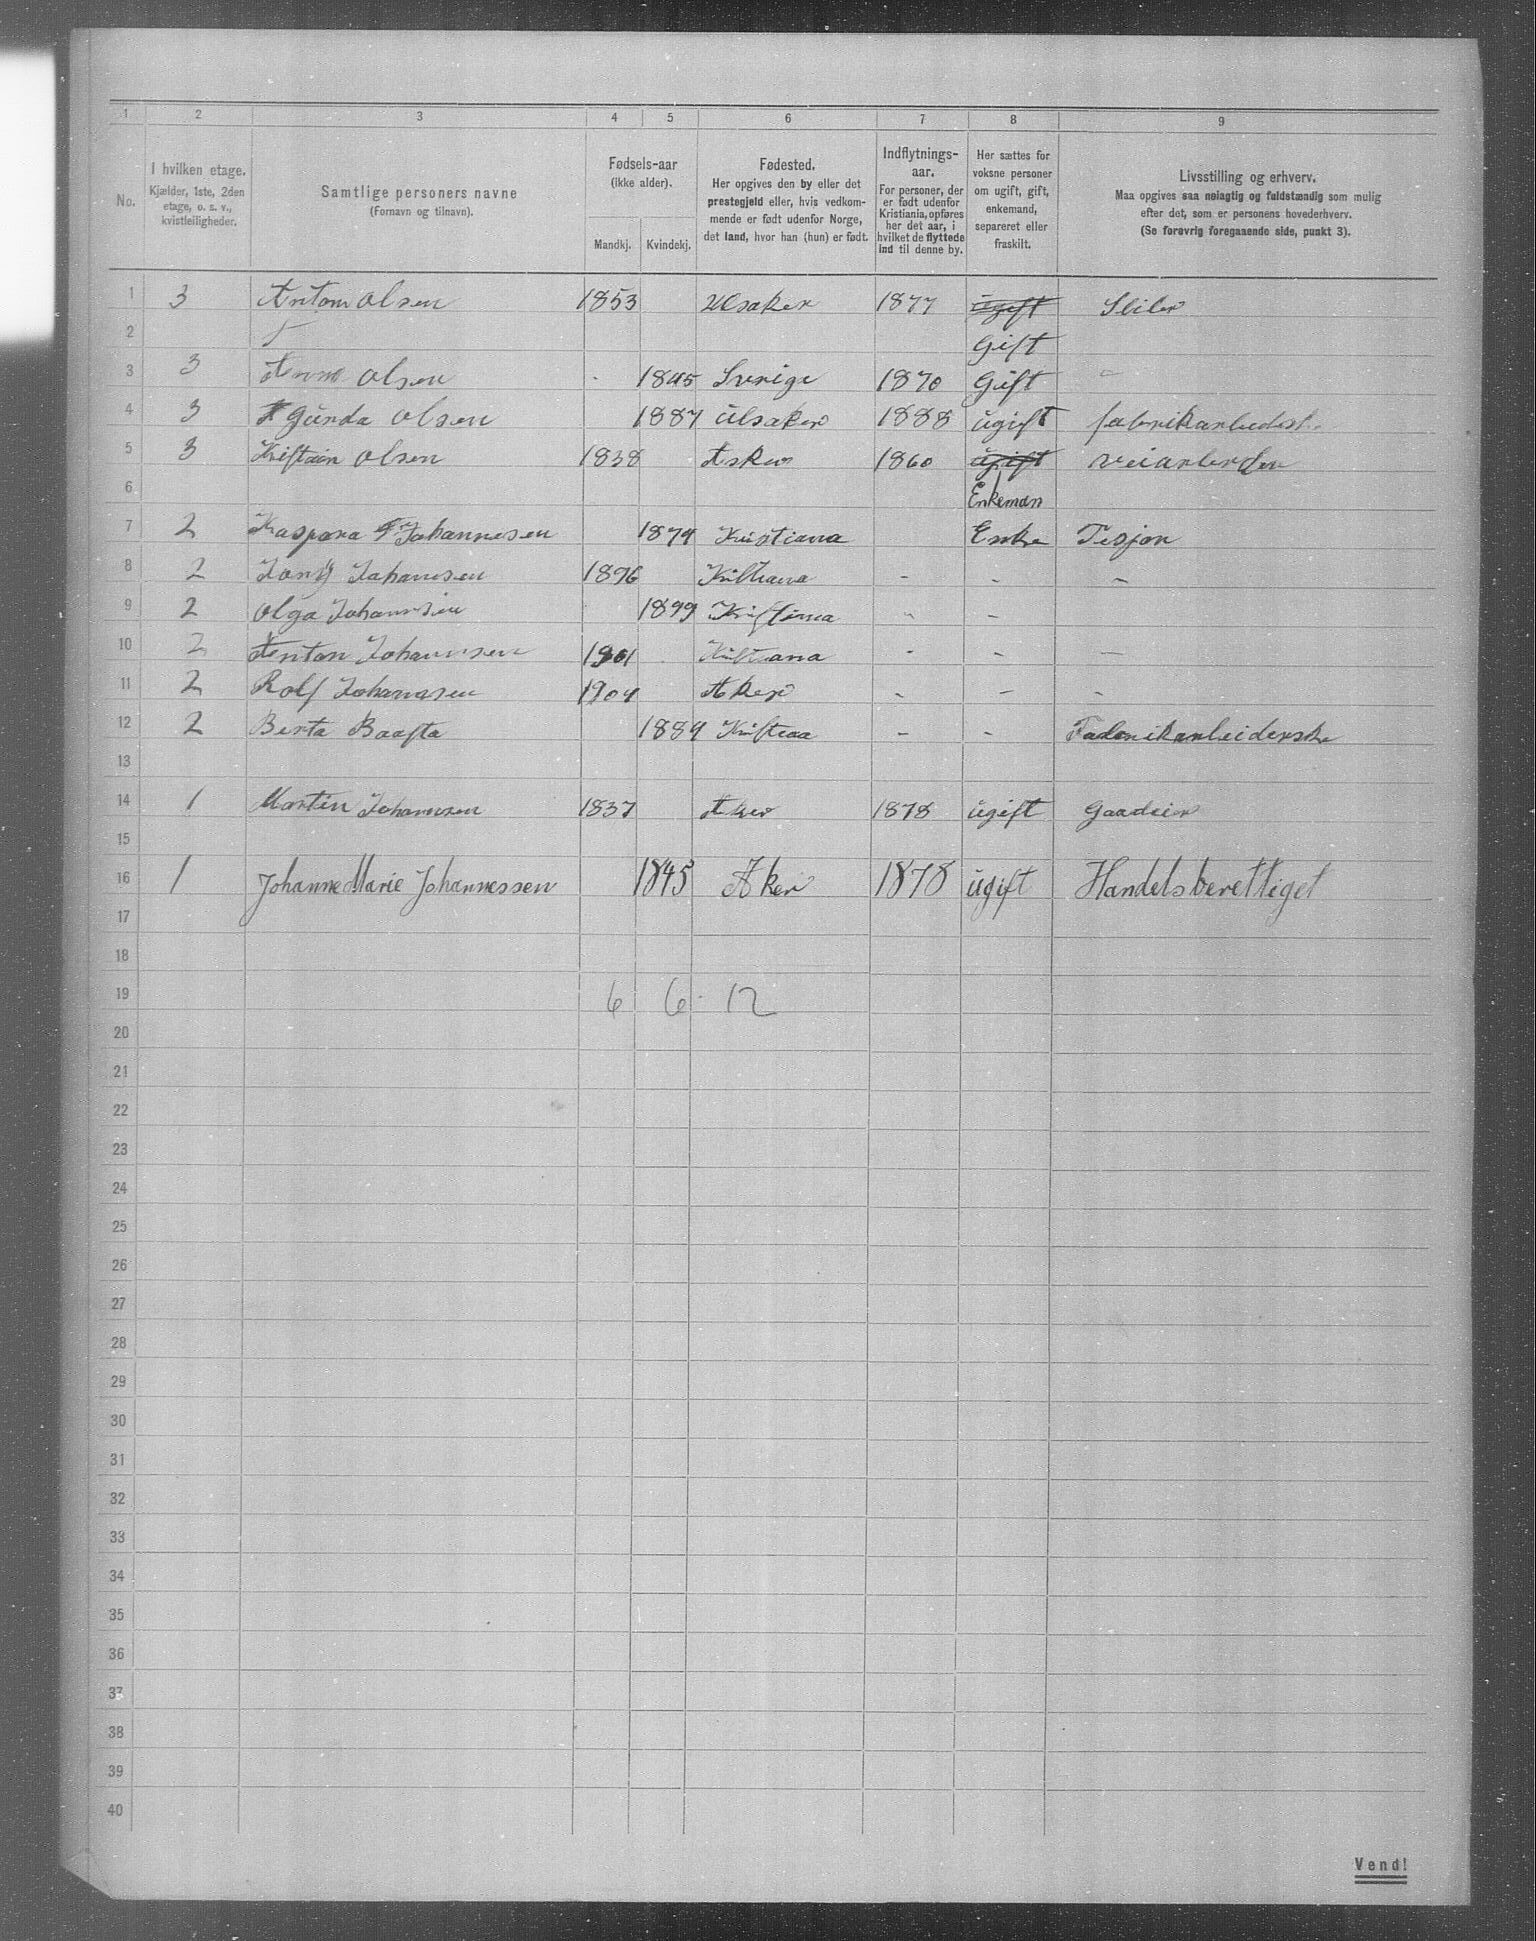 1 2 3 4 5 6 7 8 9
No.
I hvilken etage.
Kjælder, 1ste, 2den
etage, o. s. v.,
kvistleiligheder.
Samtlige personers navne
(Fornavn og tilnavn).
Fødsels-aar
(ikke alder).
Mandkj. Kvindekj.
Fødested.
Her opgives den by eller det
prestegjeld eller, hvis vedkom-
mende er født udenfor Norge,
det land, hvor han (hun) er født.
Indflytnings-
aar.
For personer, der
er født udenfor
Kristiania, opføres
her det aar, i
hvilket de flyttede
ind til denne by.
Her sættes for
voksne personer
om ugift, gift,
enkemand,
separeret eller
fraskilt.
Livsstilling og erhverv.
Maa opgives saa nøiagtig og fuldstændig som mulig
efter det, som er personens hovederhverv.
(Se forøvrig foregaaende side, punkt 3).
1 3 Anton Olsen 1853 Ulsaker 1877 ugift Sliler
2 Gift
3 3 Anna Olsen 1845 Sverige 1870 Gift
4 3 Gunda Olsen 1887 Ulsaker 1888 ugift
5 3 Olsen 1838 Asker 1860 ugift
6 Enkeman
7 2 Kaspara Johannesen 1874 Kristiana Enke
8 2 Johansen 1896 - - -
9 2 Olga Johannsen 1899 - -
10 2 Anton Johannsen 1901 - - -
11 2 Rolf Johansen 1904 Aker - - -
12 2 Berta Baasta 1884 - - Fabrikarbeiderske
13
14 1 Martin Johannsen 1837 Aker 1878 ugift
15
16 1 Johanne Marie Johannessen 1845 Aker 1878 ugift Handelsberettiget
17
18
19 6 6 12
20
21
22
23
24
25
26
27
28
29
30
31
32
33
34
35
36
37
38
39
40
Vend!